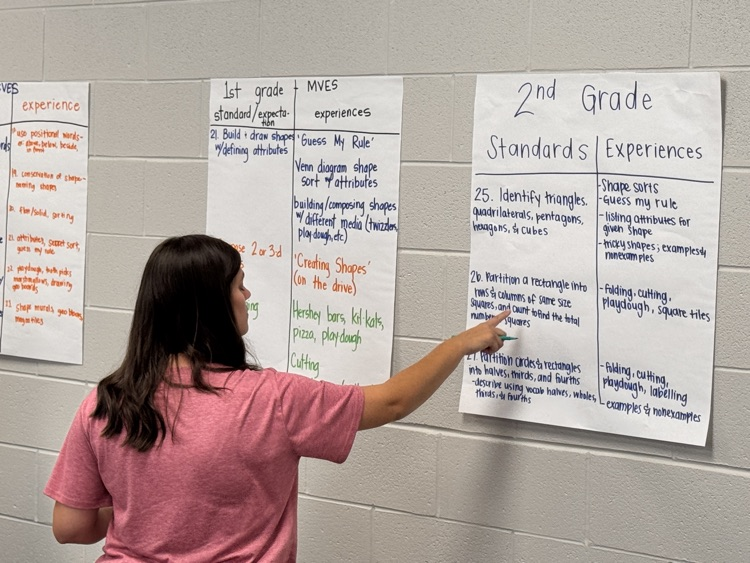 VES
experience
use positional words-
above, below, beside,
19. conservation of shape-
naming shapes
flat/solid, sorting
21. attributes, secret sort,
guess my rule
22. playdough, tooth picks
marshmallows, drawing
geo boards
23. shape murals, geo boards,
magnatiles
1st grade
standard/expecta-
tion
21. Build & draw shapes
w/defining attributes
2 or 3-d
MVES
experiences
'Guess My Rule'
Venn diagram shape
sort w/ attributes
building/composing shapes
w/ different media (twizzlers,
playdough, etc)
'Creating Shapes'
(on the drive)
Hershey bars, kit kats,
pizza, playdough
Cutting
2nd Grade
Standards
Experiences
25. Identify triangles.
quadrilaterals, pentagons,
hexagons, & cubes
-Shape sorts
-Guess my rule
-listing attributes for
given shape
-tricky shapes; examples &
nonexamples
26. Partition a rectangle into
rows & columns of same size
squares, and count to find the total
squares
-folding, cutting,
playdough, square tiles
27. Partition circles & rectangles
into halves, thirds, and fourths
-describe using vocab halves, wholes,
thirds, & fourths
-folding, cutting,
playdough, labelling
-examples & nonexamples